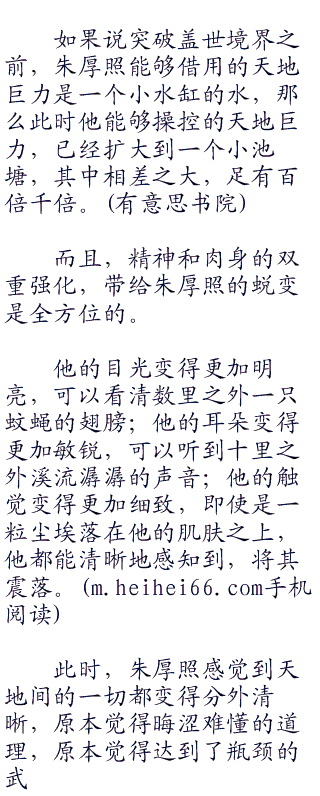 如果说突破盖世境界之
前，朱厚照能够借用的天地
巨力是一个小水缸的水，那
么此时他能够操控的天地巨
力，已经扩大到一个小池
塘，其中相差之大，足有百
倍千倍。(有意思书院)
而且，精神和肉身的双
重强化，带给朱厚照的蜕变
是全方位的。
他的目光变得更加明
亮，可以看清数里之外一只
蚊蝇的翅膀；他的耳朵变得
更加敏锐，可以听到十里之
外溪流潺潺的声音；他的触
觉变得更加细致，即使是一
粒尘埃落在他的肌肤之上，
他都能清晰地感知到，将其
震落。(m.heihei66.com手机
阅读)
此时，朱厚照感觉到天
地间的一切都变得分外清
晰，原本觉得晦涩难懂的道
理，原本觉得达到了瓶颈的
武